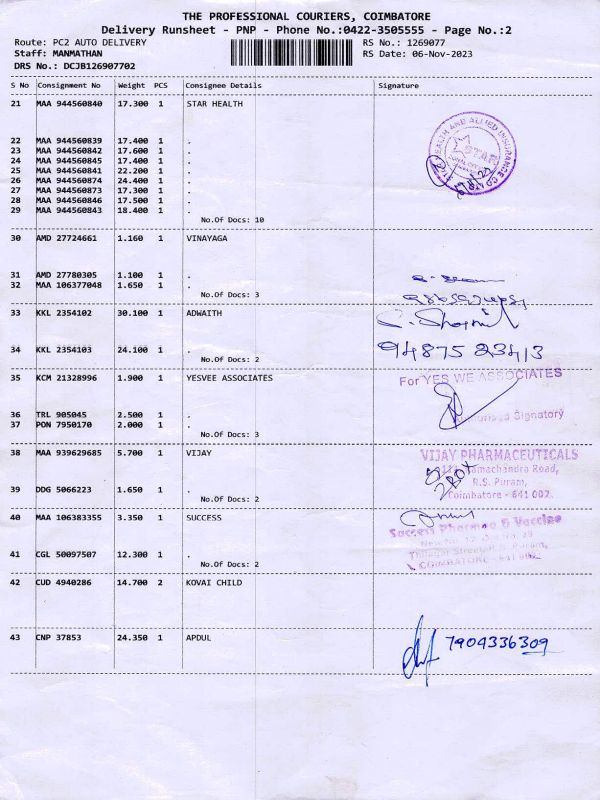 THE PROFESSIONAL COURIERS, COIMBATORE
Delivery Runsheet - PNP - Phone No.:0422-3505555 - Page No.:2
Route: PC2 AUTO DELIVERY
RS No.: 1269077
Staff: MANMATHAN
RS Date: 06-Nov-2023
DRS No.: DCJB126907702
S No Consignment No Weight PCS Consignee Details Signature
21 MAA 944560840 17.300 1 STAR HEALTH
HEALTH AND ALLIED INSURANCE CO
STAR
22 MAA 944560839 17.400 1 .
23 MAA 944560842 17.600 1 .
24 MAA 944560845 17.400 1 .
25 MAA 944560841 22.200 1 .
26 MAA 944560874 24.400 1 .
27 MAA 944560874 17.300 1 .
28 MAA 944560846 17.500 1 .
29 MAA 944560843 18.400 1 .
No.Of Docs: 10
30 AMD 27724661 1.160 1 VINAYAGA
31 AMD 27780305 1.100 1 .
32 MAA 106377048 1.650 1 .
No.Of Docs: 3
33 KKL 2354102 30.100 1 ADWAITH
34 KKL 2354103 24.100 1 .
94875 23413
No.Of Docs: 2
35 KCM 21328996 1.900 1 YESVEE ASSOCIATES
For YES WE ASSOCIATES
36 TRL 905045 2.500 1 .
Signatory
37 PON 7950170 2.000 1 .
No.Of Docs: 3
38 MAA 939629685 5.700 1 VIJAY
VIJAY PHARMACEUTICALS
Ramachandra Road,
R.S. Puram,
39 DDG 5066223 1.650 1 .
Coimbatore - 641 002.
No.Of Docs: 2
40 MAA 106383355 3.350 1 SUCCESS
Success Pharmaa & Vaccine
41 CGL 50097507 12.300 1 .
No.Of Docs: 2
COIMBATORE - 641 002
42 CUD 4940286 14.700 2 KOVAI CHILD
43 CNP 37853 24.350 1 APDUL
7904336309